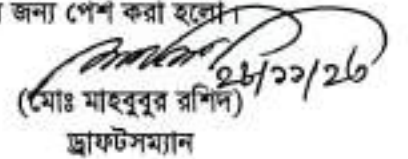 র জন্য পেশ করা হলো।
২৮/১১/২৩
(মোঃ মাহবুবুর রশিদ)
ড্রাফটসম্যান